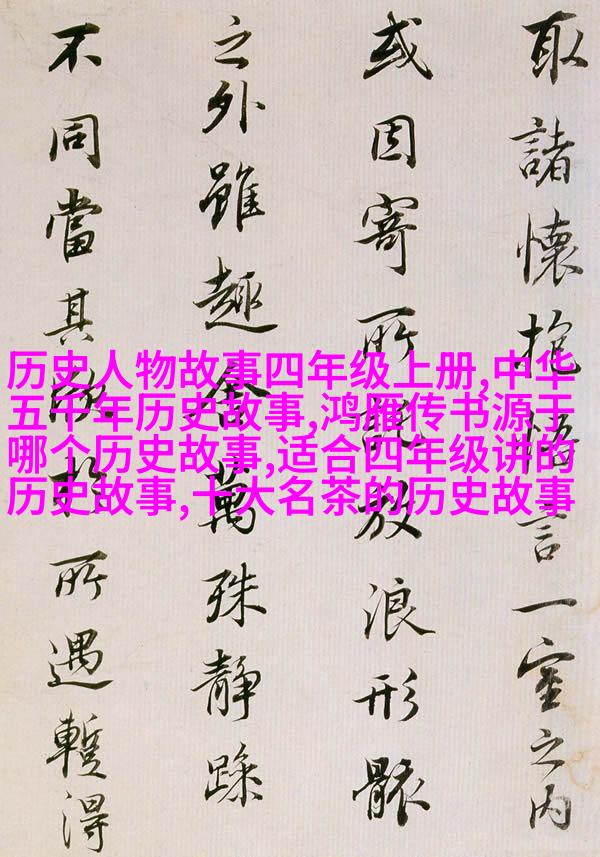 取諸懷抱悟言一室之内
或因寄所託放浪形骸
之外雖趣舍萬殊静躁
不同當其欣於所遇暫得
历史人物故事四年级上册,中华
五千年历史故事,鸿雁传书源于
哪个历史故事,适合四年级讲的
历史故事,十大名茶的历史故事